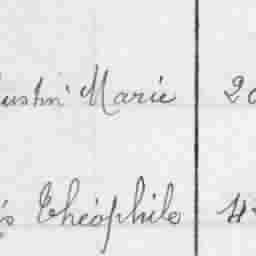 ustin Marie 20
is Théophile 4